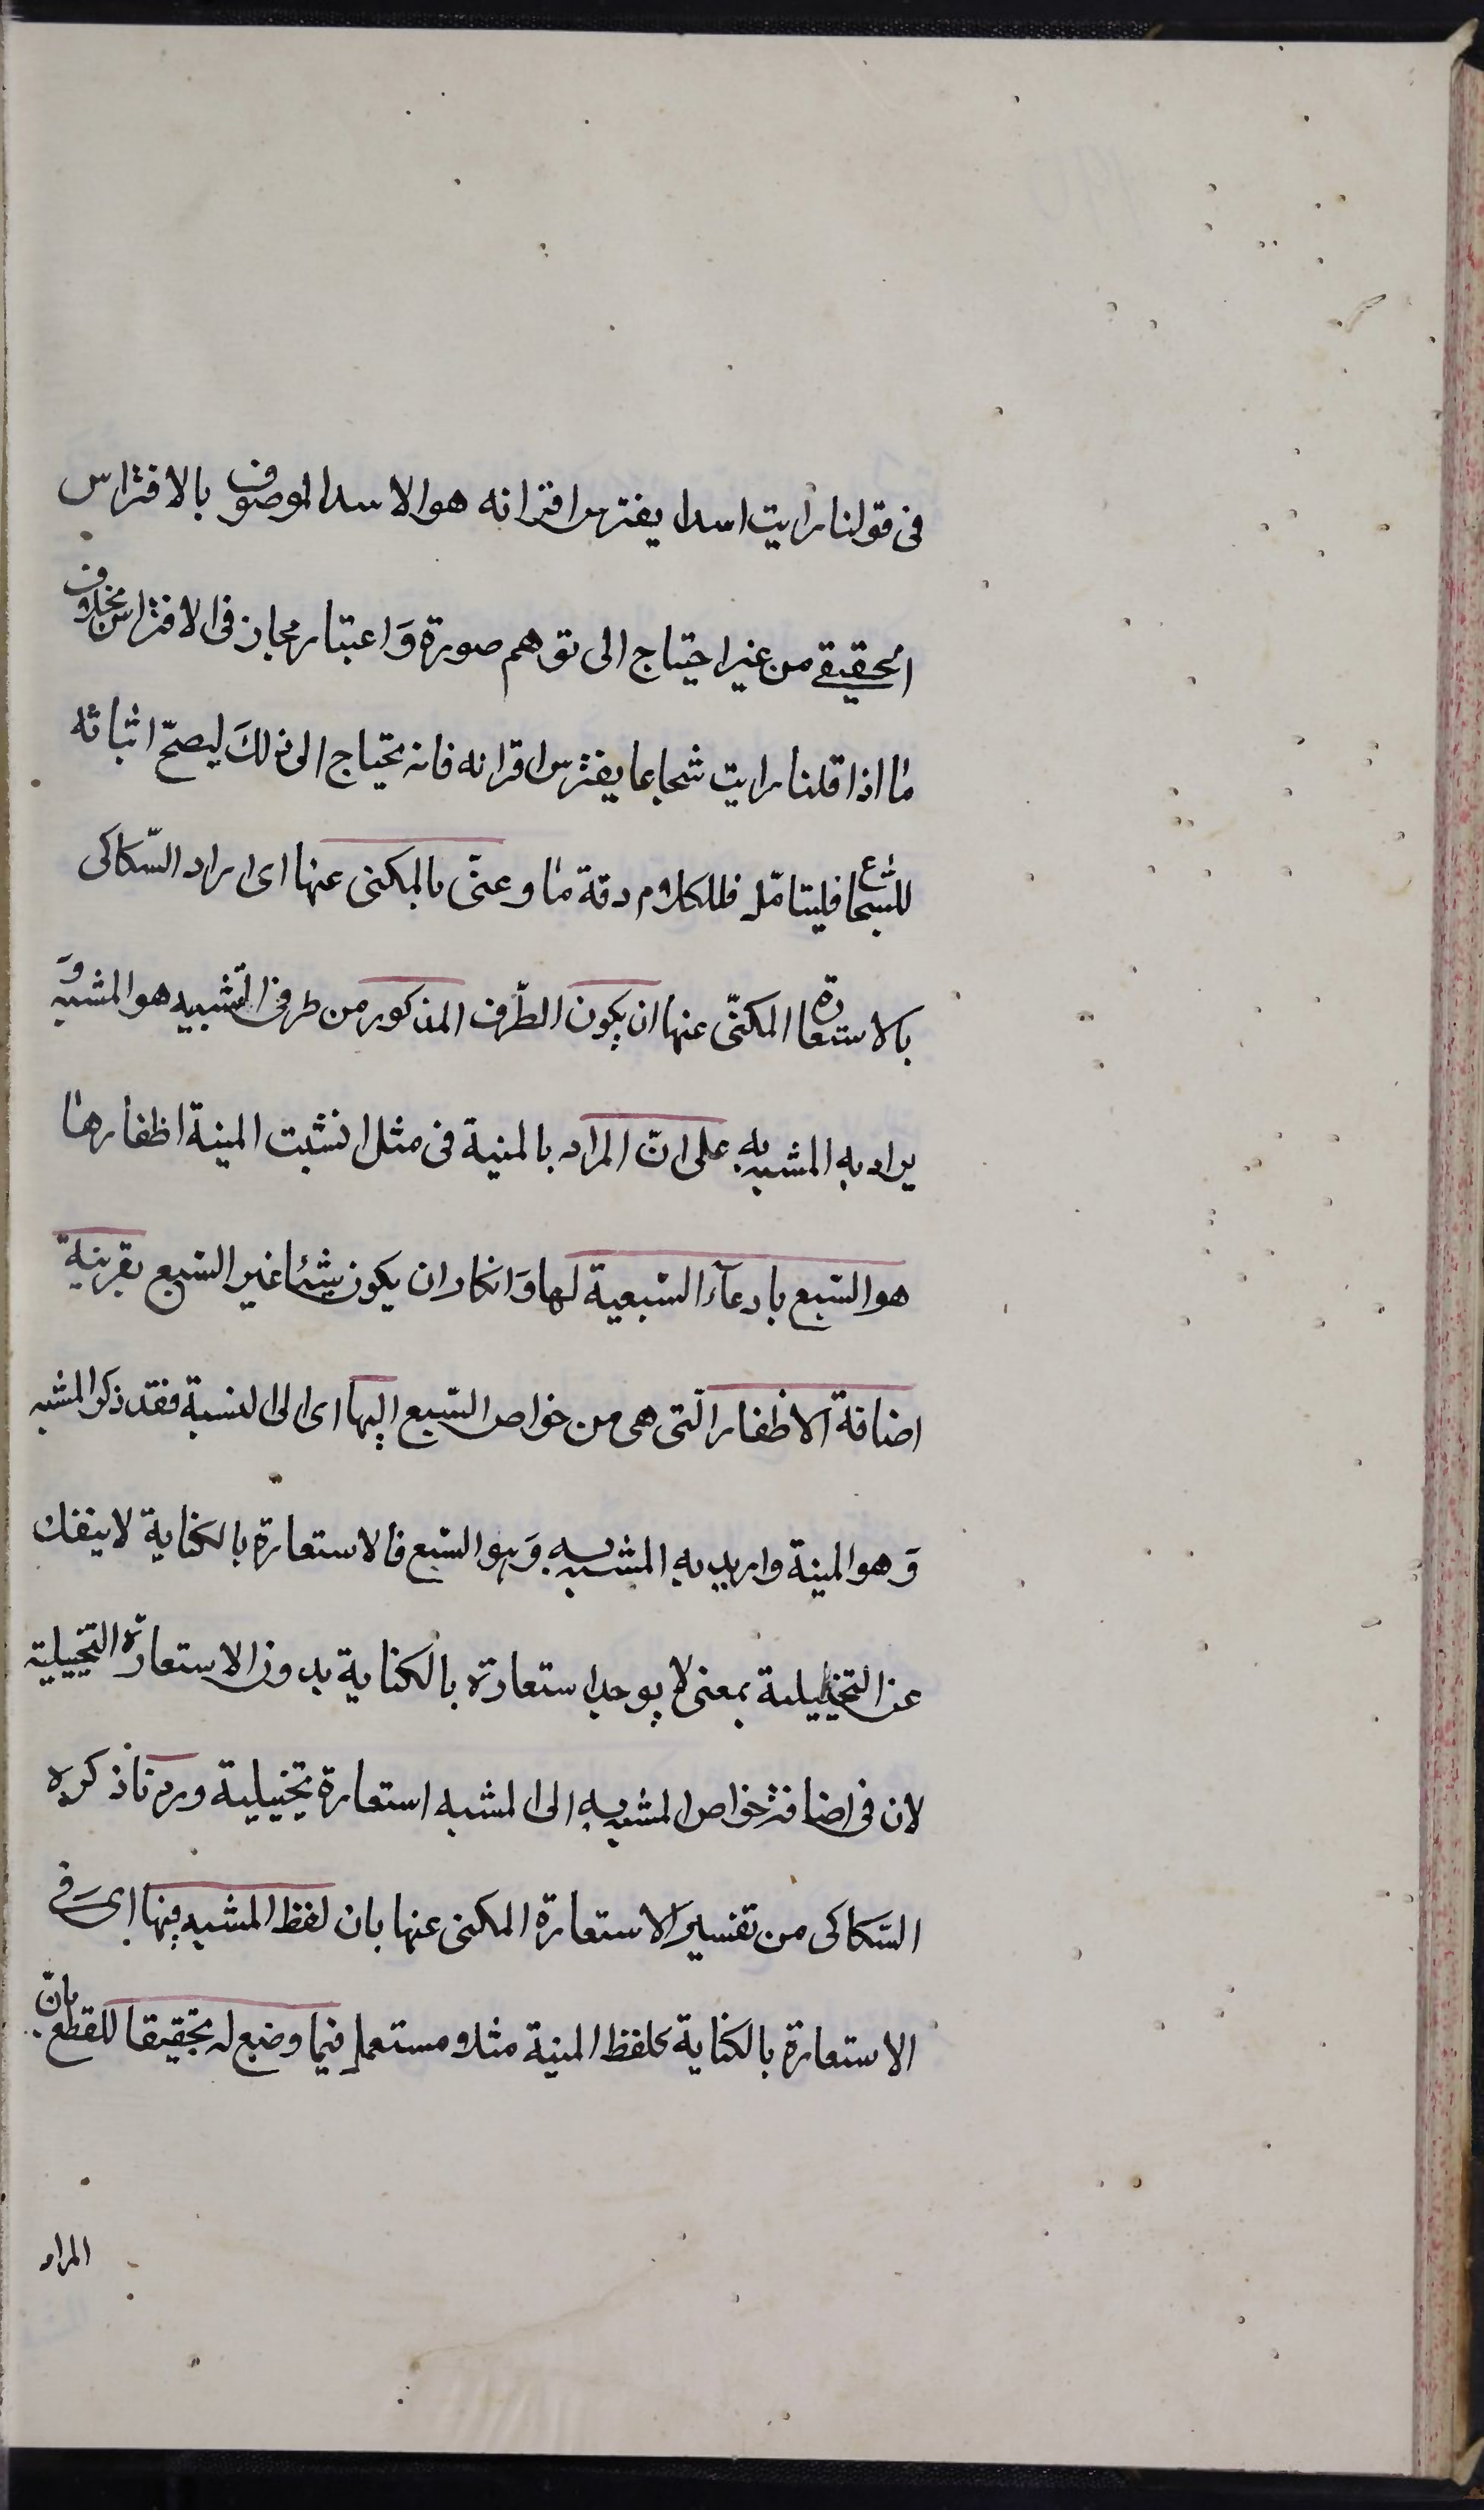 فى قولنا رايت اسدا يفترس اقرانه هو الاسد الموصوف بالافتراس
الحقيقى من غير احتياج الى توهم صورة وَاعتبار مجاز فى الافتراس بخلاف
ما اذا قلنا رايت شجاعا يفترس اقرانه فانه يحتاج الى ذلكَ ليصحّ اثباته
للشجاع فليتامّل فللكلام دقة ما وعنّى بالمكنى عنها اى اراد السّكاكى
بالاستعارة المكنّى عنها ان يكون الطّرف المذكور من طرفى التّشبيه هو المشبه وَ
يراد به المشبه به على انّ المراد بالمنية فى مثل انشبت المنية اظفارها
هو السّبع بادعآء السّبعية لها وَانكار ان يكون شيئا غير السّبع بقرينة
اضافة الاظفار الّتى هى من خواص السّبع اليها اى الى المنية فقد ذكر المشبه
وَهو المنية واريد به المشبه به وَهو السّبع فالاستعارة بالكناية لا ينفك
عن التخييلية بمعنى لا يوجد استعارة بالكناية بدون الاستعارة التّخييلية
لان فى اضافة خواص المشبه به الى المشبه استعارة تخييلية ورد ما ذكره
السّكاكى من تفسير الاستعارة المكنى عنها بان لفظ المشبه فيها اى فى
الاستعارة بالكناية كلفظ المنية مثلا مستعمل فيما وضع له تحقيقا للقطع بانّ
المراد